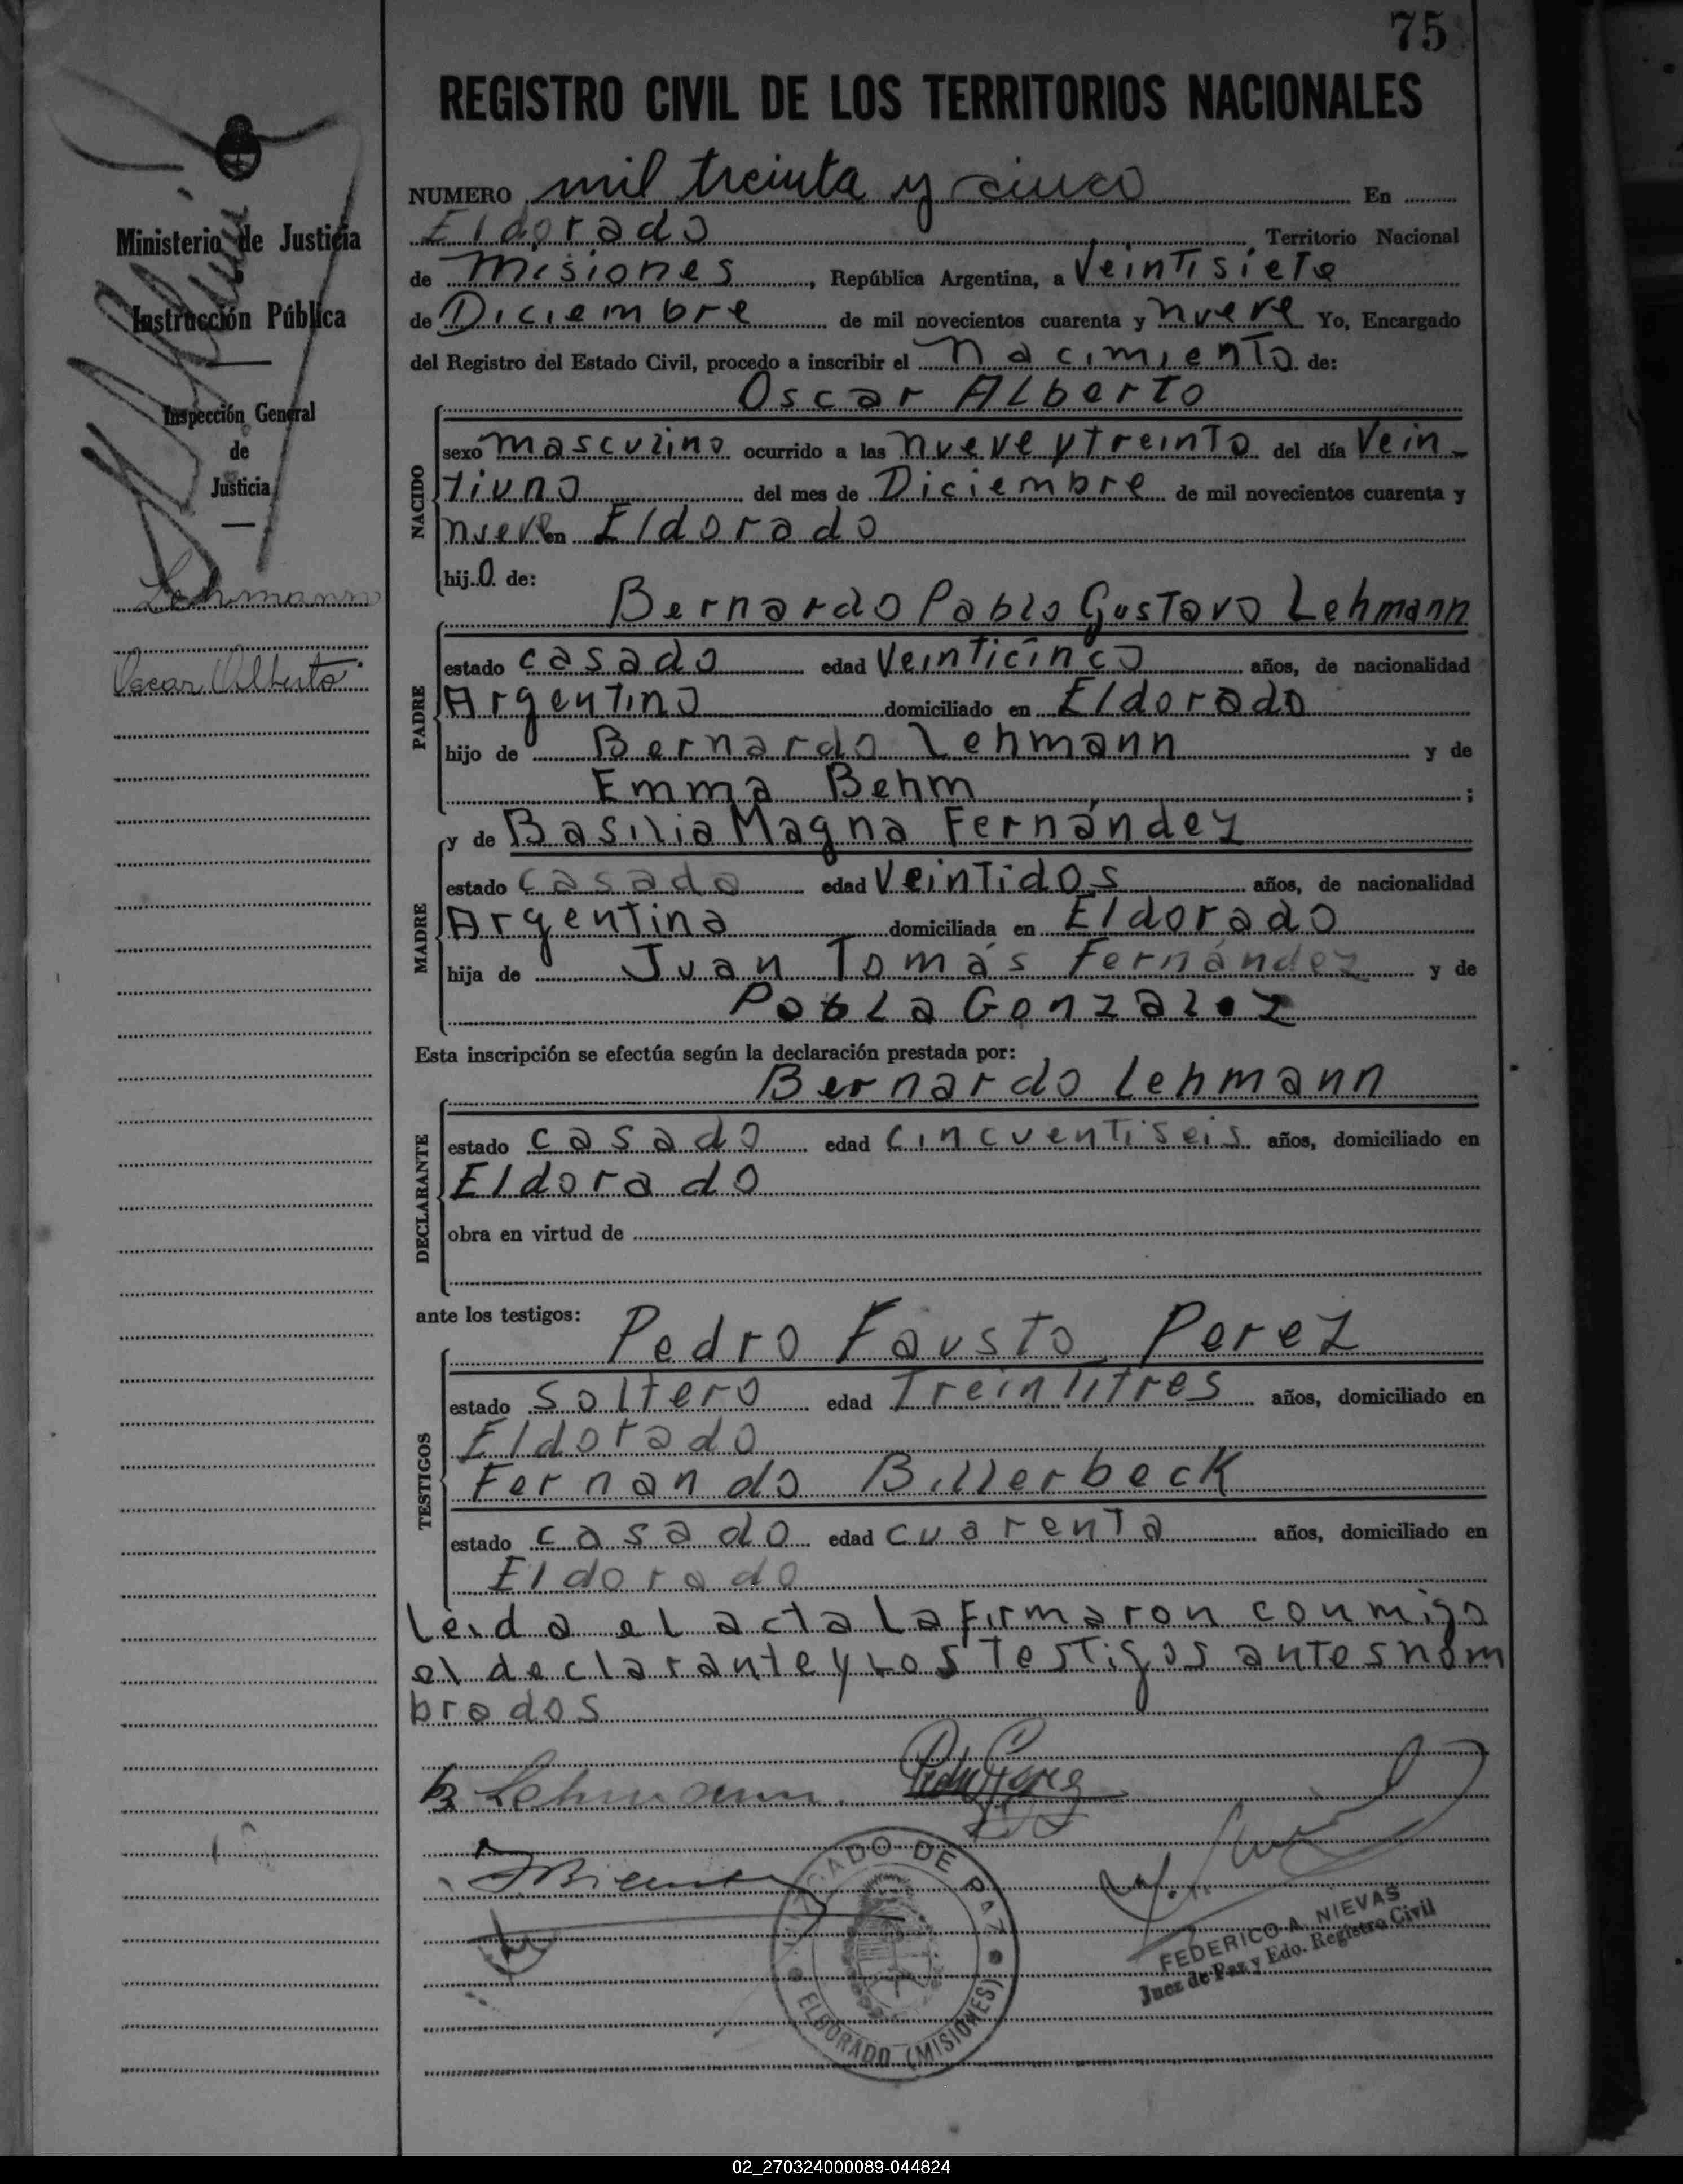 75
REGISTRO CIVIL DE LOS TERRITORIOS NACIONALES
Ministerio de Justicia
Instrucción Pública
Inspección General
de
Justicia
Lehmann
Oscar Alberto
NUMERO mil treinta y cinco En
Eldorado Territorio Nacional
de Misiones, República Argentina, a Veintisiete
de Diciembre de mil novecientos cuarenta y nueve Yo, Encargado
del Registro del Estado Civil, procedo a inscribir el nacimiento de:
Oscar Alberto
NACIDO
sexo masculino ocurrido a las nueve y treinta del día Vein-
tiuno del mes de Diciembre de mil novecientos cuarenta y
nueve en Eldorado
hijo de:
Bernardo Pablo Gustavo Lehmann
PADRE
estado casado edad Veinticinco años, de nacionalidad
Argentino domiciliado en Eldorado
hijo de Bernardo Lehmann y de
Emma Behm ;
y de Basilia Magna Fernández
MADRE
estado casada edad Veintidos años, de nacionalidad
Argentina domiciliada en Eldorado
hija de Juan Tomás Fernández y de
Pabla Gonzalez
Esta inscripción se efectúa según la declaración prestada por:
Bernardo Lehmann
DECLARANTE
estado casado edad cincuentiseis años, domiciliado en
Eldorado
obra en virtud de
ante los testigos:
Pedro Fausto Perez
TESTIGOS
estado soltero edad Treintitres años, domiciliado en
Eldorado
Fernando Billerbeck
estado casado edad cuarenta años, domiciliado en
Eldorado
Leida el acta la firmaron conmigo
el declarante y los testigos antes nom
brados
B Lehmann.
Pedro F Perez
JUZGADO DE PAZ
ELDORADO (MISIONES)
FEDERICO A. NIEVAS
Juez de Paz y Edo. Registro Civil
02_270324000089-044824